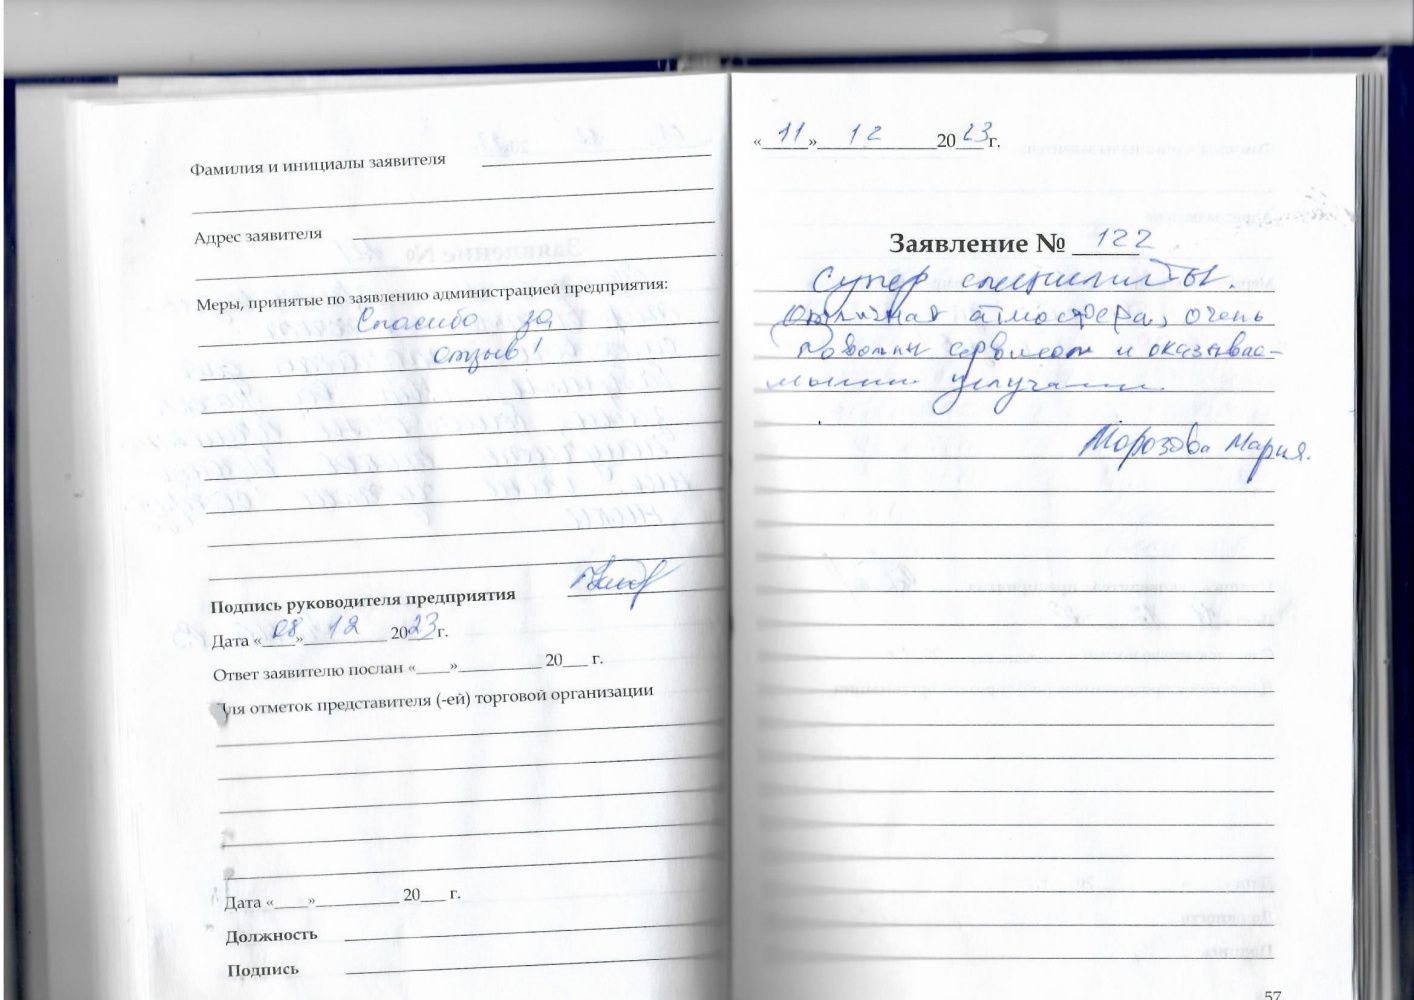 Фамилия и инициалы заявителя
Адрес заявителя
Меры, принятые по заявлению администрацией предприятия:
Спасибо за
отзыв!
Подпись руководителя предприятия
Дата «08» 12 2023 г.
Ответ заявителю послан «____»__________ 20___ г.
Для отметок представителя (-ей) торговой организации
Дата «____»__________ 20___ г.
Должность
Подпись
«11» 12 2023 г.
Заявление № 122
Супер специалисты.
Отличная атмосфера, очень
довольны сервисом и оказывае-
мыми услугами.
Морозова Мария.
57